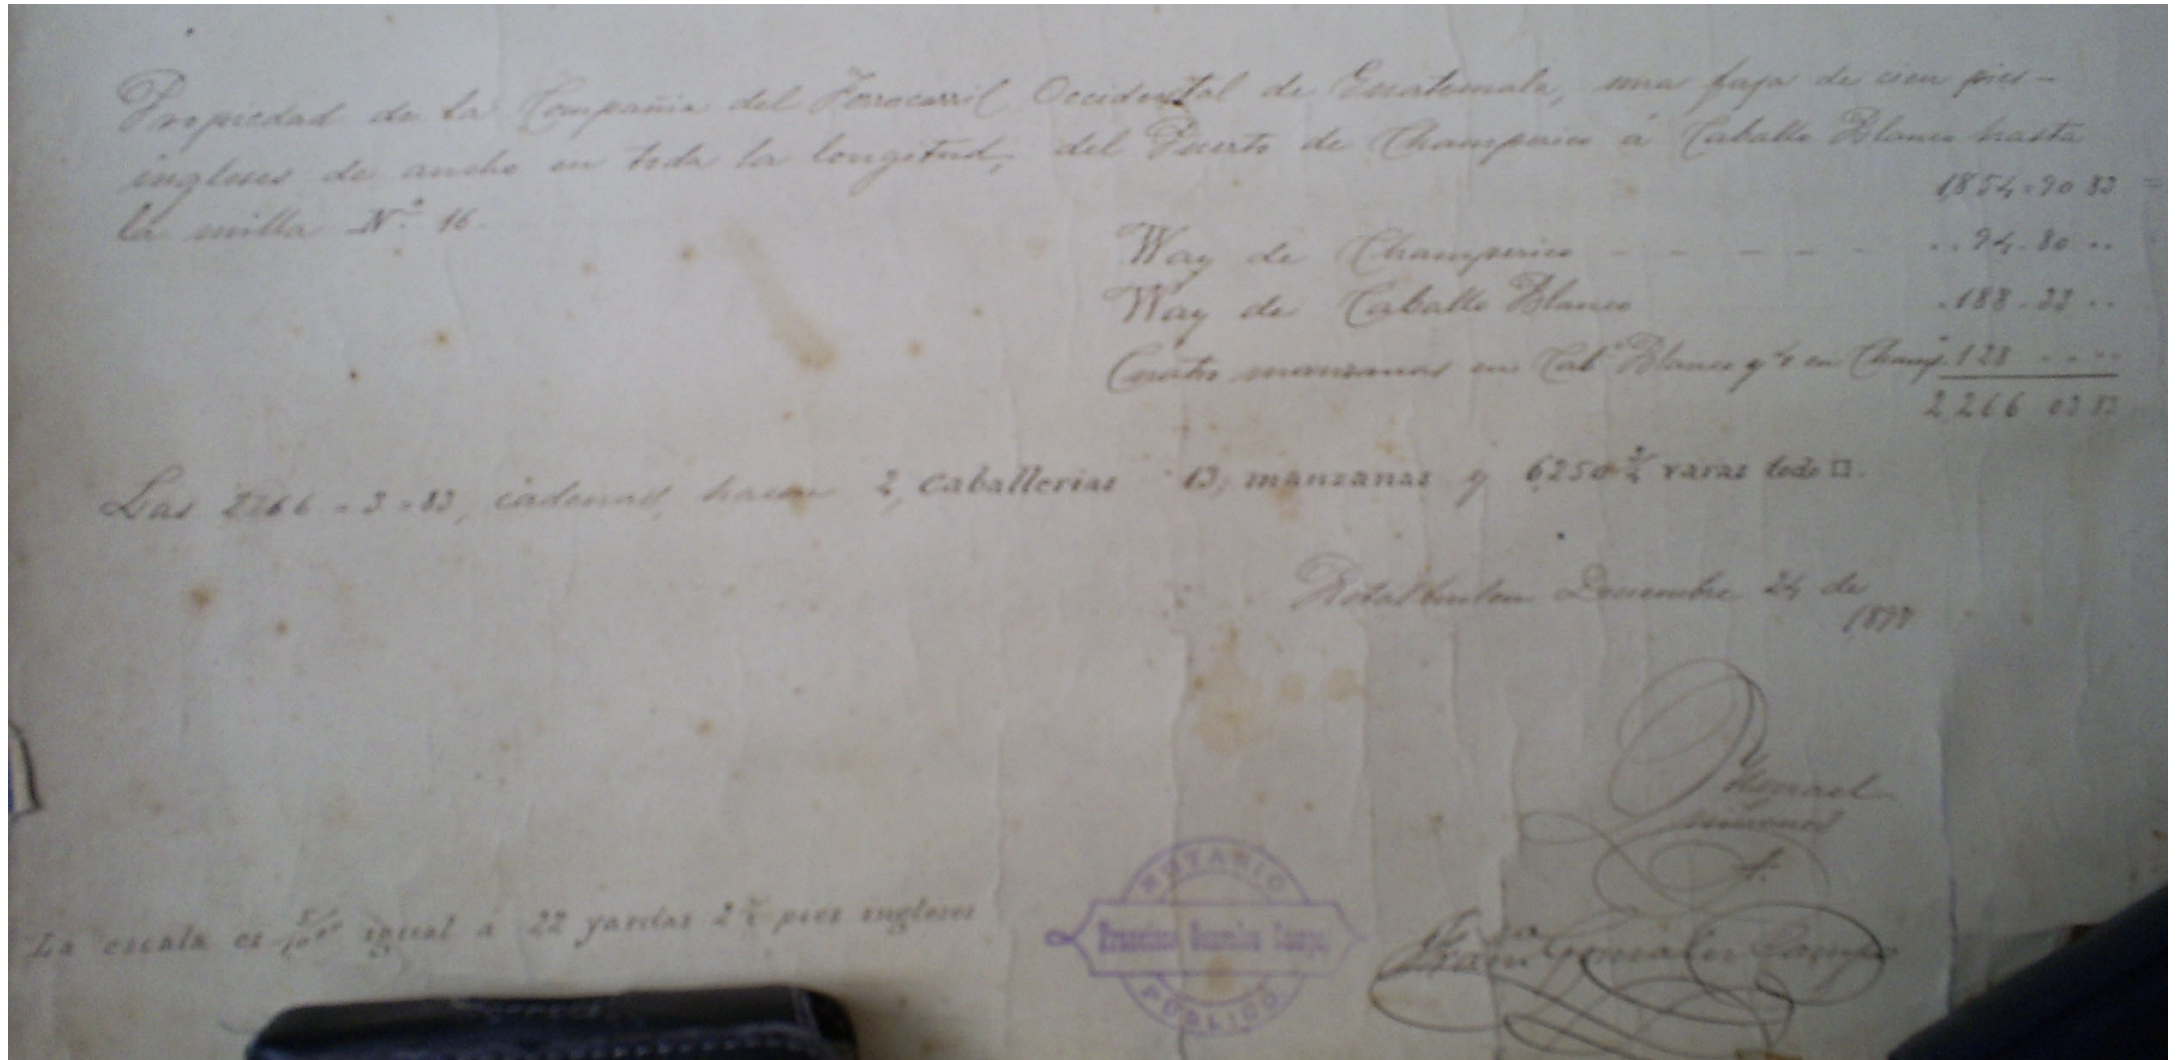 Propiedad de la Compañia del Ferrocarril Occidental de Guatemala, una faja de cien pies-
ingleses de ancho en toda la longitud, del Puerto de Champerico á Caballo Blanco hasta
la milla Nº 16.
1,854=90 83 =
Way de Champerico - - - - - - ..94.80..
Way de Caballo Blanco .188.33..
Cuatro manzanas en Cabº Blanco y 4 en Champº 128 ....
2,266 03 83
Las 2266=3=83, cadenas, hacen 2, caballerias 13, manzanas y 6250 varas todo □.
Retalhuleu Diciembre 24 de
NOTARIO
PÚBLICO.
La escala es igual á 22 yardas 2 pies ingleses